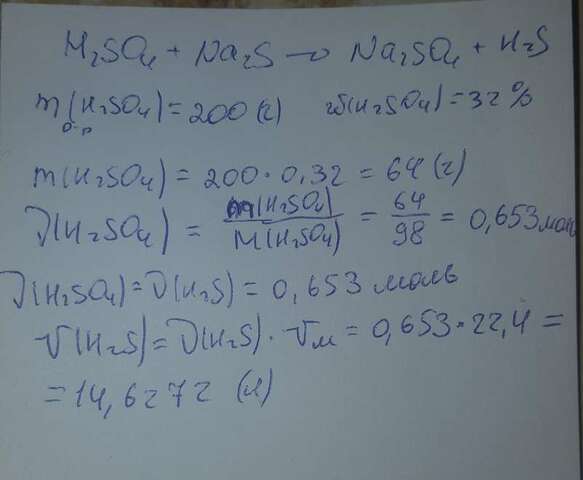 H₂SO₄ + Na₂S → Na₂SO₄ + H₂S
m р-р (H₂SO₄) = 200 (г) ω(H₂SO₄) = 32%
m(H₂SO₄) = 200 · 0,32 = 64 (г)
ν(H₂SO₄) = m(H₂SO₄) / M(H₂SO₄) = 64 / 98 = 0,653 моль
ν(H₂SO₄) = ν(H₂S) = 0,653 моль
V(H₂S) = ν(H₂S) · Vм = 0,653 · 22,4 =
= 14,6272 (л)